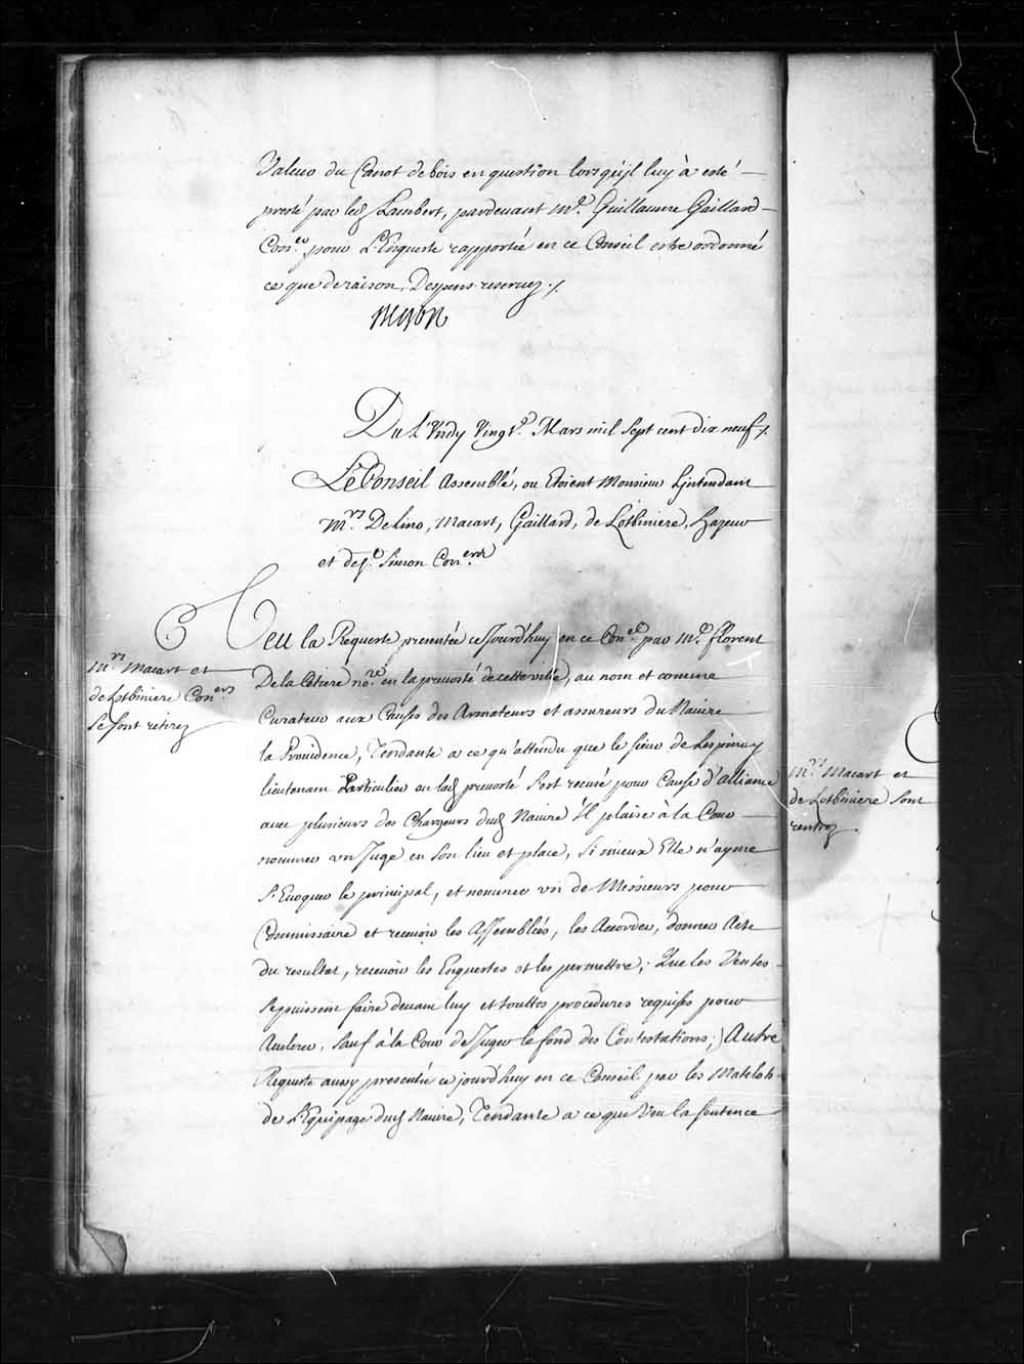 Valeur du Canot de bois en question lorsqu'jl luy à esté
presté par led Lambert, pardeuant Me. Guillaume Gaillard
Conr. pour L'Enqueste rapportée en ce Conseil estre ordonné
ce que de raison, Despens reseruez ./.
Du Lundy Vingte. Mars mil Sept cent dix neuf ./.
Le Conseil Assemblé, ou Etoient Monsieur L'jntendant
Mrs. Delino, Macart, Gaillard, de Lotbiniere, hazeur
et Simon Coners
Veu la Requeste presentée cejourd'huy en ce Conel. par Me. florent
De la Cetiere nore. en la preuosté de cette ville, au nom et comme
Curateur aux Causes des Armateurs et assureurs du Nauire
la Prouidence, Tendante a ce qu'attendu que le sieur de Lespinay
lieutenant Particulier en lad preuosté s'est recusé pour Cause d'alliance
auec plusieurs des Chargeurs dud Nauire Il plaise à la Cour
nommer vn Juge en son lieu et place, si mieux Elle n'ayme
s'Euoquer le principal, et nommer vn de Messieurs pour
Commissaire et receuoir les Assemblées, les Accorder, donner Acte
du resultat, receuoir les Enquestes et les permettre; Que les Ventes
se puissent faire deuant luy et touttes procedures requises pour
sauf à la Cour de Juger le fond des Contestations; Autre
Requeste aussy presentée ce jourd'huy en ce Conseil par les Matelots
de L'Equipage dud Nauire, Tendante a ce que Veu la sentence
Mrs. Macart et
de Lotbiniere Coners
se sont retirez
Mrs. Macart et
de Lotbiniere sont
rentrez.